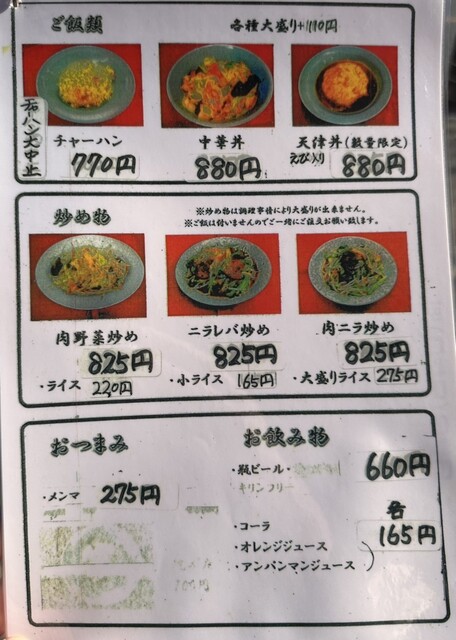 ご飯類 各種大盛り+110円
チャーハン大中止
チャーハン 中華丼 天津丼(数量限定)
えび入り
770円 880円 880円
炒め物
※炒め物は調理事情により大盛りが出来ません。
※ご飯は付いませんのでご一緒にご注文お願い致します。
肉野菜炒め ニラレバ炒め 肉ニラ炒め
825円 825円 825円
・ライス 220円 ・小ライス 165円 ・大盛りライス 275円
おつまみ お飲み物
・瓶ビール・ 660円
キリンフリー
・メンマ 275円
各
・コーラ 165円
・オレンジジュース
・アンパンマンジュース